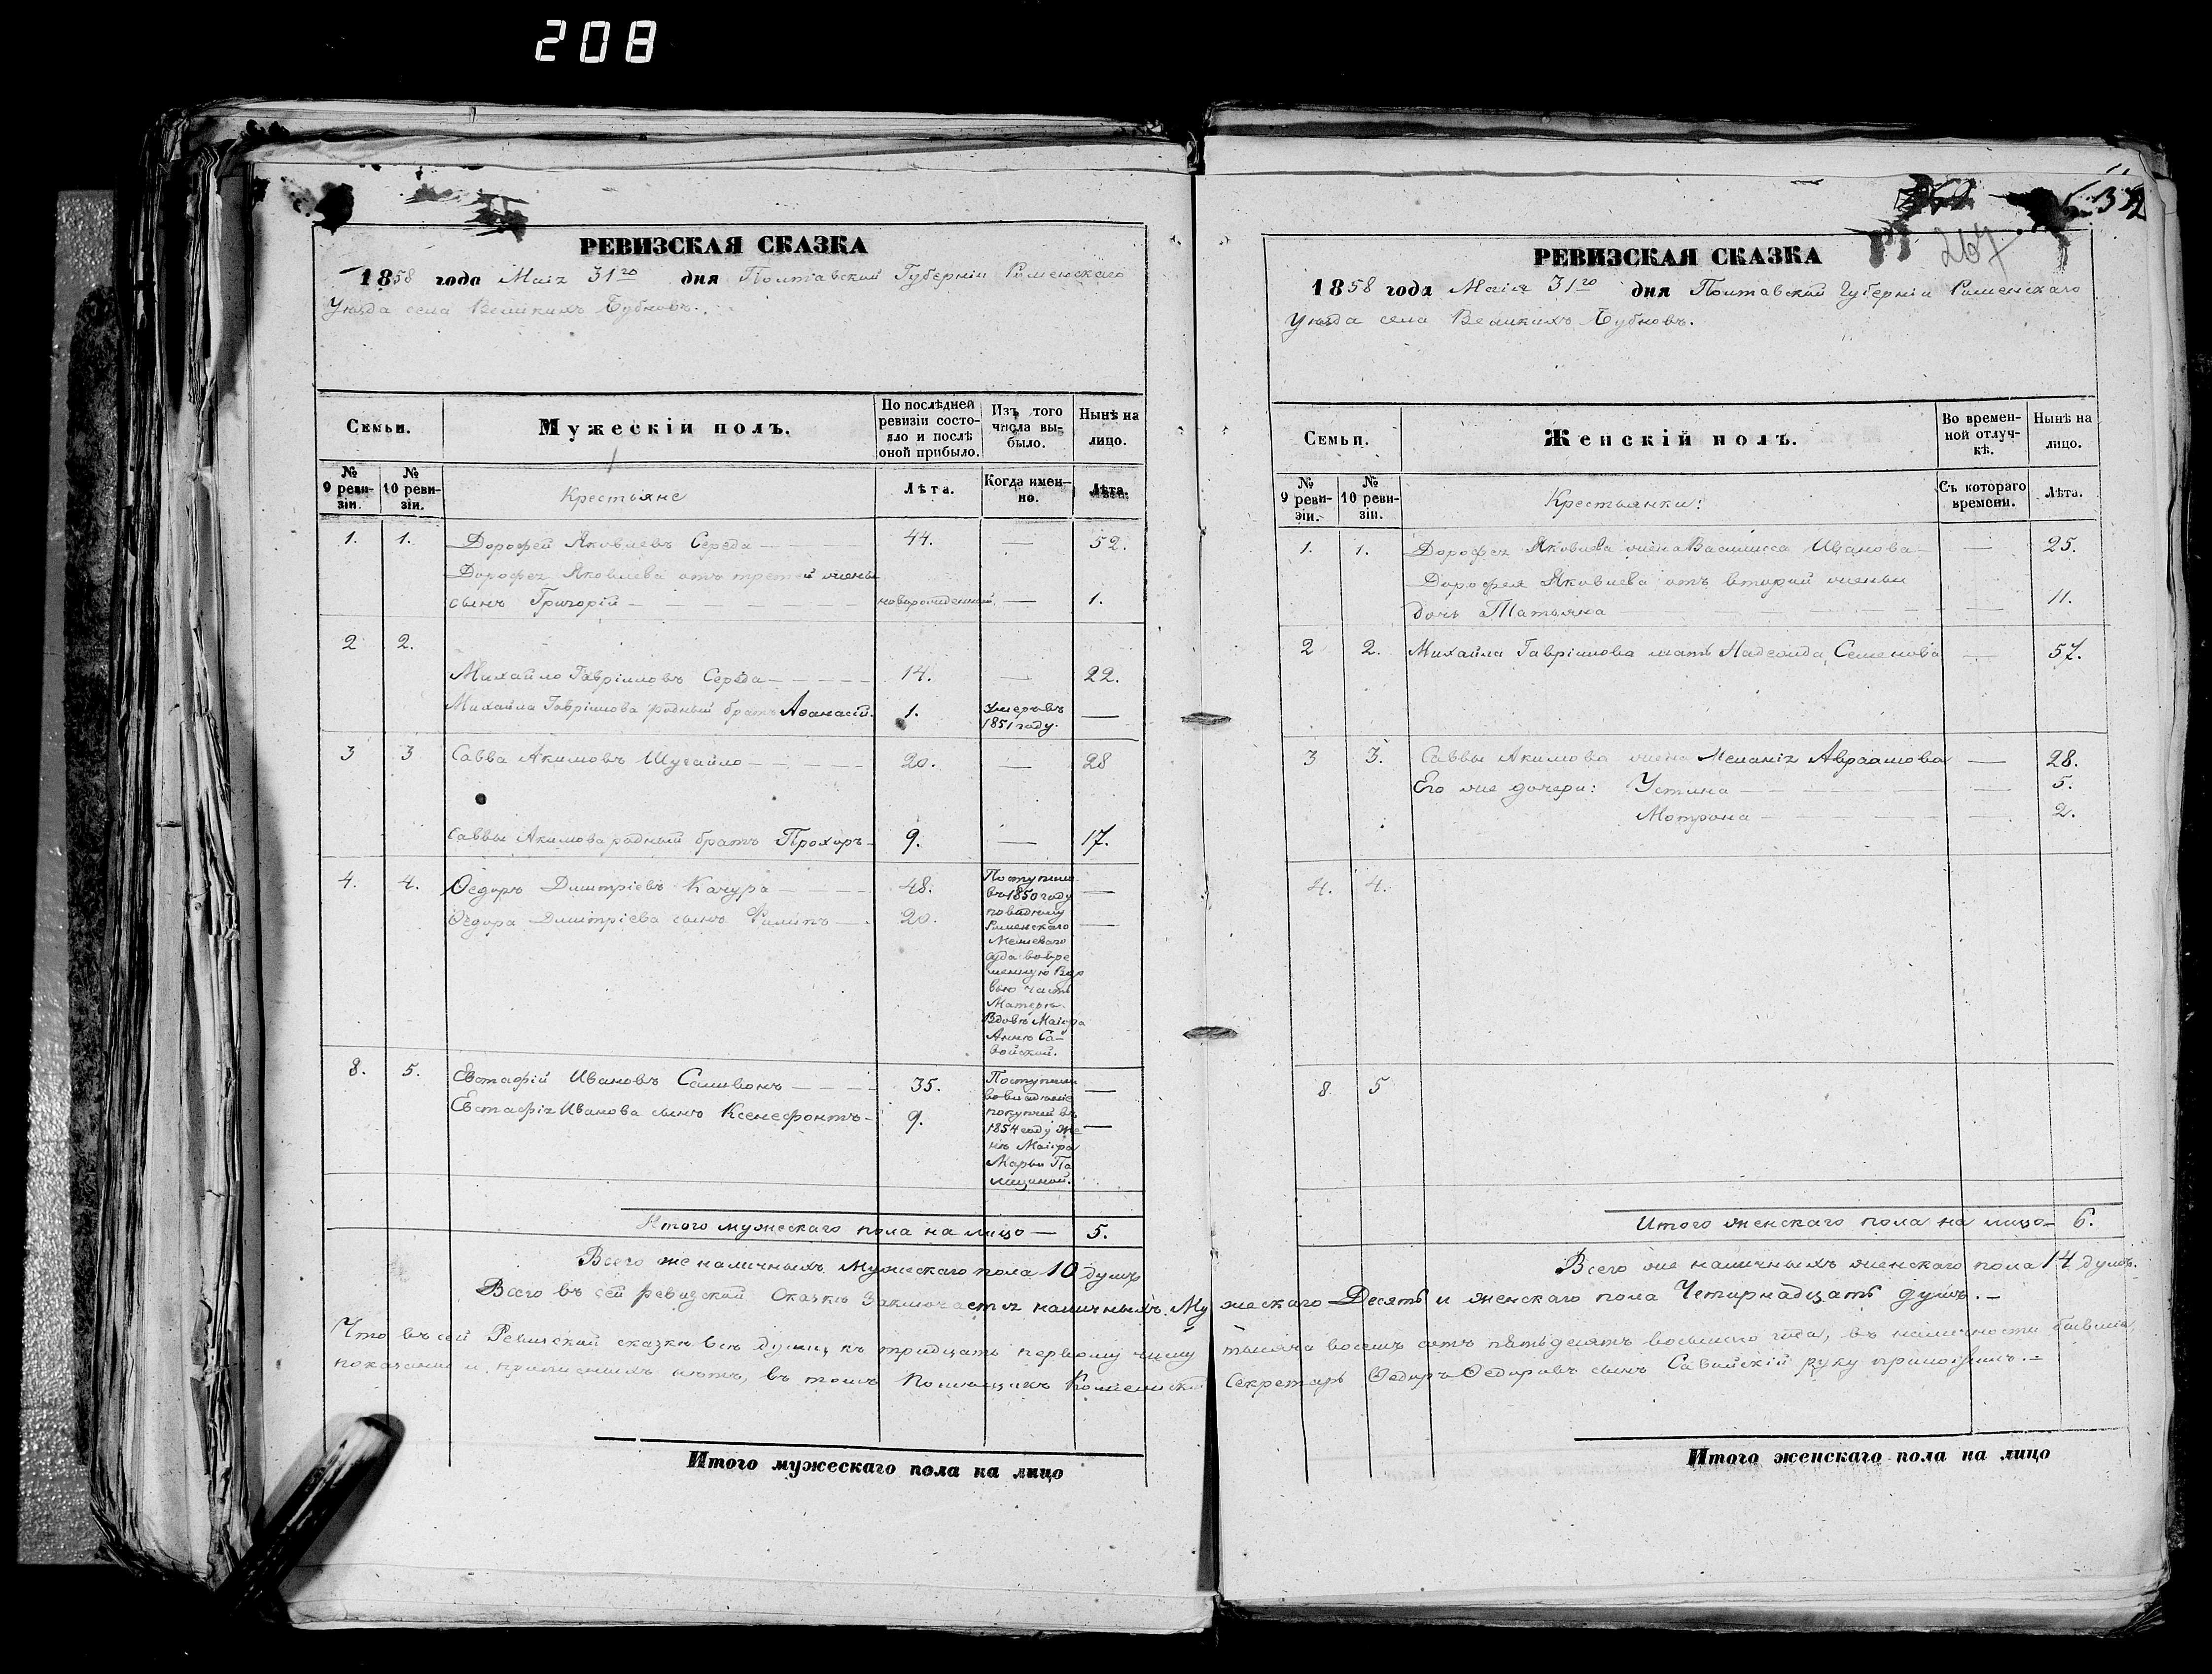 208
РЕВИЗСКАЯ СКАЗКА
1858 года Маія 31го дня Полтавской Губерніи Роменскаго
Уѣзда села Великихъ Бубновъ.
Семьи.
Мужескій полъ.
По послѣдней ревизіи состояло и послѣ оной прибыло.
Изъ того числа выбыло.
Нынѣ на лицо.
№ 9 ревизіи.
№ 10 ревизіи.
Крестьяне
Лѣта.
Когда именно.
Лѣта.
1. 1. Дорофей Яковлевъ Середа — 44. — 52.
Дорофея Яковлева отъ третей жены
сынъ Григорій — новорожденный — 1.
2 2.
Михайло Гавріиловъ Середа — 14. — 22.
Михайла Гавріилова родный братъ Афанасій. 1. Умеръ въ 1851 году. —
3 3 Савва Акимовъ Шугайло — 20. — 28
Саввы Акимова родный братъ Прохоръ — 9. — 17.
4. 4. Ѳедоръ Дмитріевъ Качура — 48. —
Ѳедора Дмитріева сынъ Филипъ — 20. —
Поступили
въ 1850 году
Роменскаго
Вдовѣ Маіора
Аннѣ Са-
войской.
8. 5. Евстафій Ивановъ Саливонъ — 35. —
Евстафія Иванова сынъ Ксенефонтъ — 9. —
Поступили
во владѣніе
покупкой въ
1854 году же
нѣ Маіора
Марьи Па
лициной.
Итого мужескаго пола на лицо — 5.
Всего же наличныхъ Мужескаго пола 10 душъ
РЕВИЗСКАЯ СКАЗКА
267
1858 года Маія 31го дня Полтавской Губерніи Роменскаго
Уѣзда села Великихъ Бубновъ.
Семьи.
Женскій полъ.
Во временной отлучкѣ.
Нынѣ на лицо.
№ 9 ревизіи.
№ 10 ревизіи.
Крестьянки:
Съ котораго времени.
Лѣта.
1. 1. Дорофея Яковлева жена Василиса Иванова — 25.
Дорофея Яковлева отъ второй жены
дочь Татьяна — 11.
2 2. Михайла Гавріилова мать Надежда Семенова — 57.
3 3. Саввы Акимова жена Меланія Авраамова — 28.
Его же дочери: Устина — 5.
Мотрона — 2.
4. 4.
8 5
Итого женскаго пола на лицо — 6.
Всего же наличныхъ женскаго пола 14 душъ.
Всего въ сей ревизской Сказкѣ Заключается наличныхъ Мужескаго Десять и женскаго пола Четирнадцать душъ. —
Что въ сей Ревизской сказкѣ всѣ души къ тридцать первому числу тысяча восемь сотъ пѣтьдесятъ восьмого года, въ наличности бывшія,
показаны и прописныхъ нѣтъ, въ томъ Помѣщикъ Секретарь Ѳедоръ Ѳедоровъ сынъ Савойскій руку приложилъ. —
Итого мужескаго пола на лицо
Итого женскаго пола на лицо